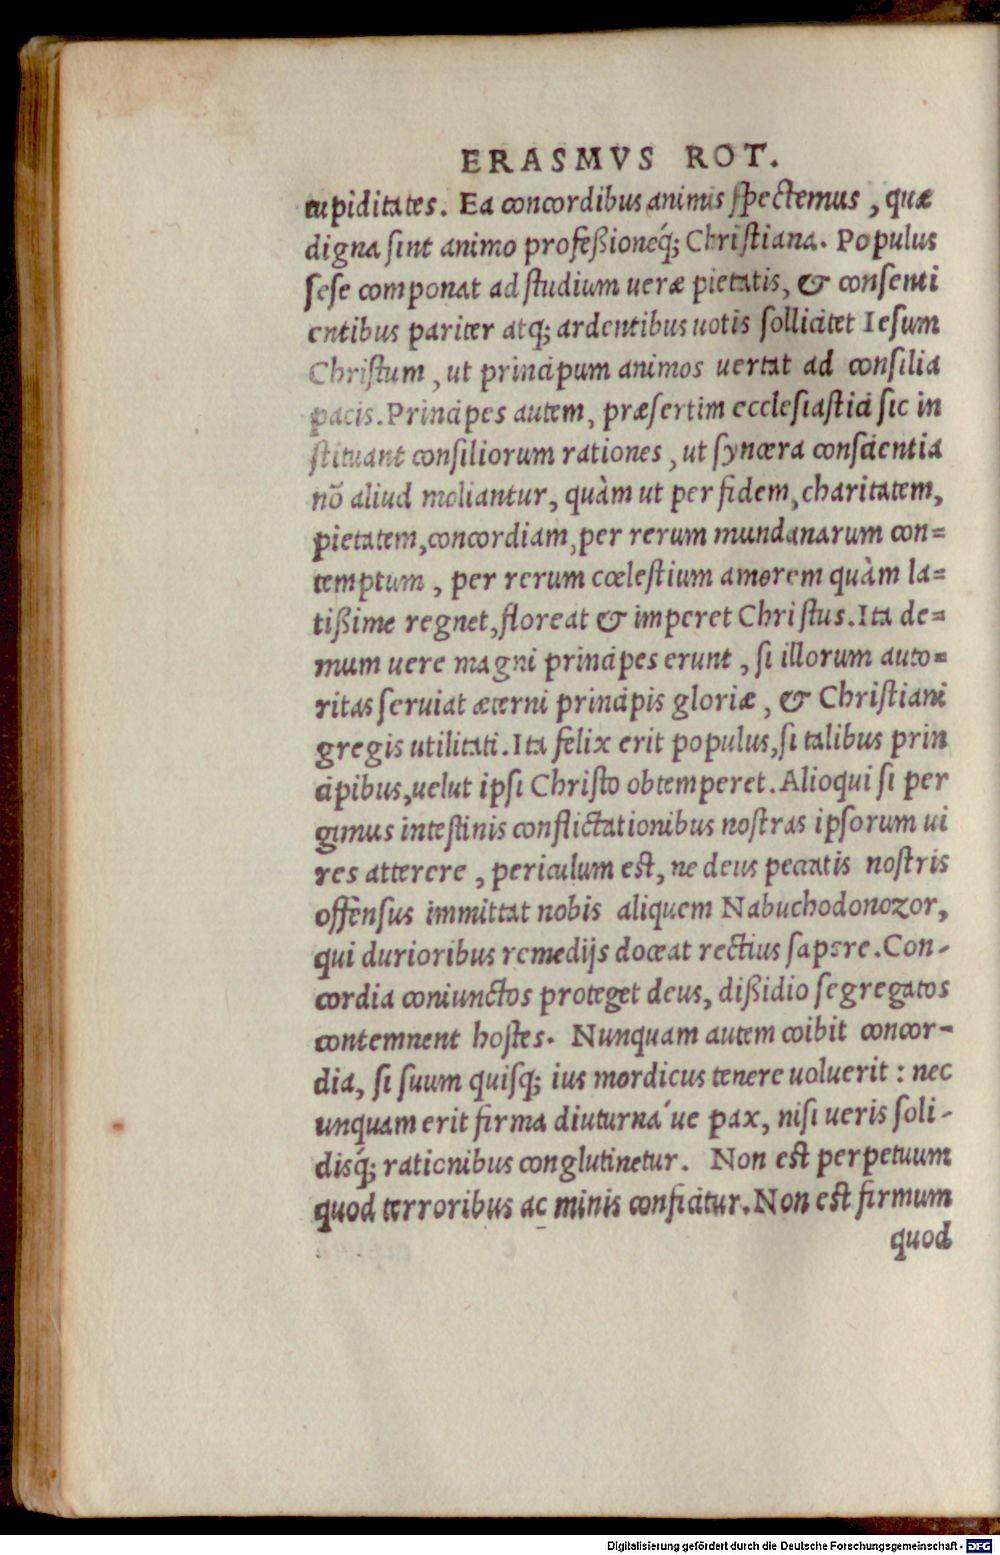 ERASMVS ROT.
cupiditates. Ea concordibus animis spectemus, quæ
digna sint animo profeßioneq́; Christiana. Populus
sese componat ad studium ueræ pietatis, & consenti
entibus pariter atq; ardentibus uotis sollicitet Iesum
Christum, ut principum animos uertat ad consilia
pacis. Principes autem, præsertim ecclesiastici sic in
stituant consiliorum rationes, ut syncera conscientia
nõ aliud moliantur, quàm ut per fidem, charitatem,
pietatem, concordiam, per rerum mundanarum con=
temptum, per rerum cœlestium amorem quàm la=
tißime regnet, floreat & imperet Christus. Ita de=
mum uere magni principes erunt, si illorum auto=
ritas seruiat æterni principis gloriæ, & Christiani
gregis utilitati. Ita felix erit populus, si talibus prin
cipibus, uelut ipsi Christo obtemperet. Alioqui si per
gimus intestinis conflictationibus nostras ipsorum ui
res atterere, periculum est, ne deus peccatis nostris
offensus immittat nobis aliquem Nabuchodonozor,
qui durioribus remedijs doceat rectius sapere. Con-
cordia coniunctos proteget deus, dißidio segregatos
contemnent hostes. Nunquam autem coibit concor-
dia, si suum quisq; ius mordicus tenere uoluerit: nec
unquam erit firma diuturna´ue pax, nisi ueris soli-
disq́; rationibus conglutinetur. Non est perpetuum
quod terroribus ac minis conficitur. Non est firmum
quod
Digitalisierung gefördert durch die Deutsche Forschungsgemeinschaft - DFG